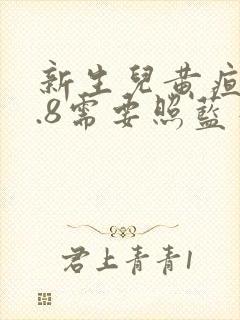 新生兒黃疸
.8需要照藍
君上青青1